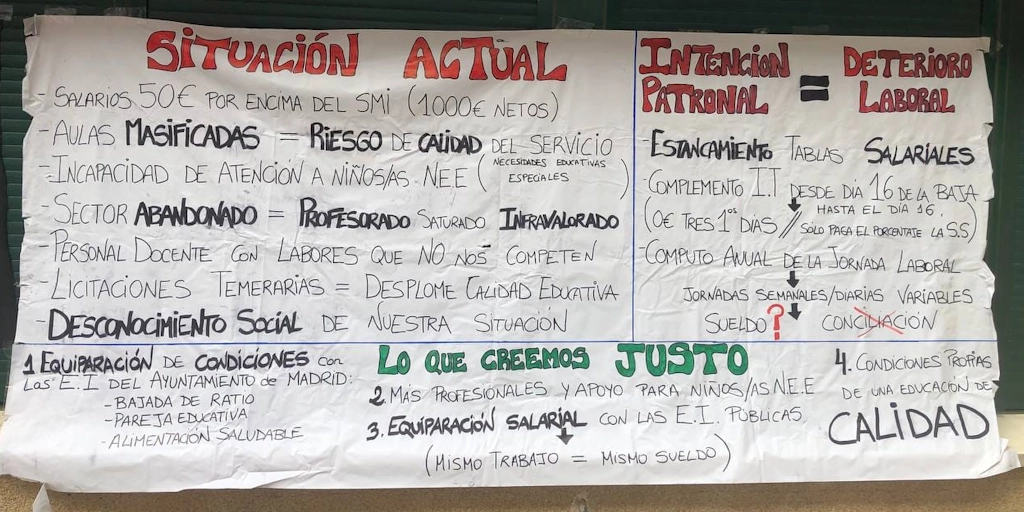 SITUACIÓN ACTUAL
- SALARIOS 50€ POR ENCIMA DEL SMI (1000€ NETOS)
- AULAS MASIFICADAS = RIESGO DE CALIDAD DEL SERVICIO
- INCAPACIDAD DE ATENCIÓN A NIÑOS/AS N.E.E (NECESIDADES EDUCATIVAS
ESPECIALES)
- SECTOR ABANDONADO = PROFESORADO SATURADO INFRAVALORADO
- PERSONAL DOCENTE CON LABORES QUE NO NOS COMPETEN
- LICITACIONES TEMERARIAS = DESPLOME CALIDAD EDUCATIVA
- DESCONOCIMIENTO SOCIAL DE NUESTRA SITUACIÓN
INTENCIÓN
PATRONAL
=
DETERIORO
LABORAL
- ESTANCAMIENTO TABLAS SALARIALES
- COMPLEMENTO I.T DESDE DÍA 16 DE LA BAJA
HASTA EL DÍA 16,
(0€ TRES 1os DÍAS // SÓLO PAGA EL PORCENTAJE LA S.S)
- COMPUTO ANUAL DE LA JORNADA LABORAL
JORNADAS SEMANALES/DIARIAS VARIABLES
SUELDO? CONCILIACIÓN
LO QUE CREEMOS JUSTO
1 EQUIPARACIÓN DE CONDICIONES con
Las E.I DEL AYUNTAMIENTO de MADRID:
- BAJADA DE RATIO
- PAREJA EDUCATIVA
- ALIMENTACIÓN SALUDABLE
2 MÁS PROFESIONALES Y APOYO PARA NIÑOS/AS N.E.E
3. EQUIPARACIÓN SALARIAL CON LAS E.I. PÚBLICAS
(MISMO TRABAJO = MISMO SUELDO)
4. CONDICIONES PROPIAS
DE UNA EDUCACIÓN DE
CALIDAD